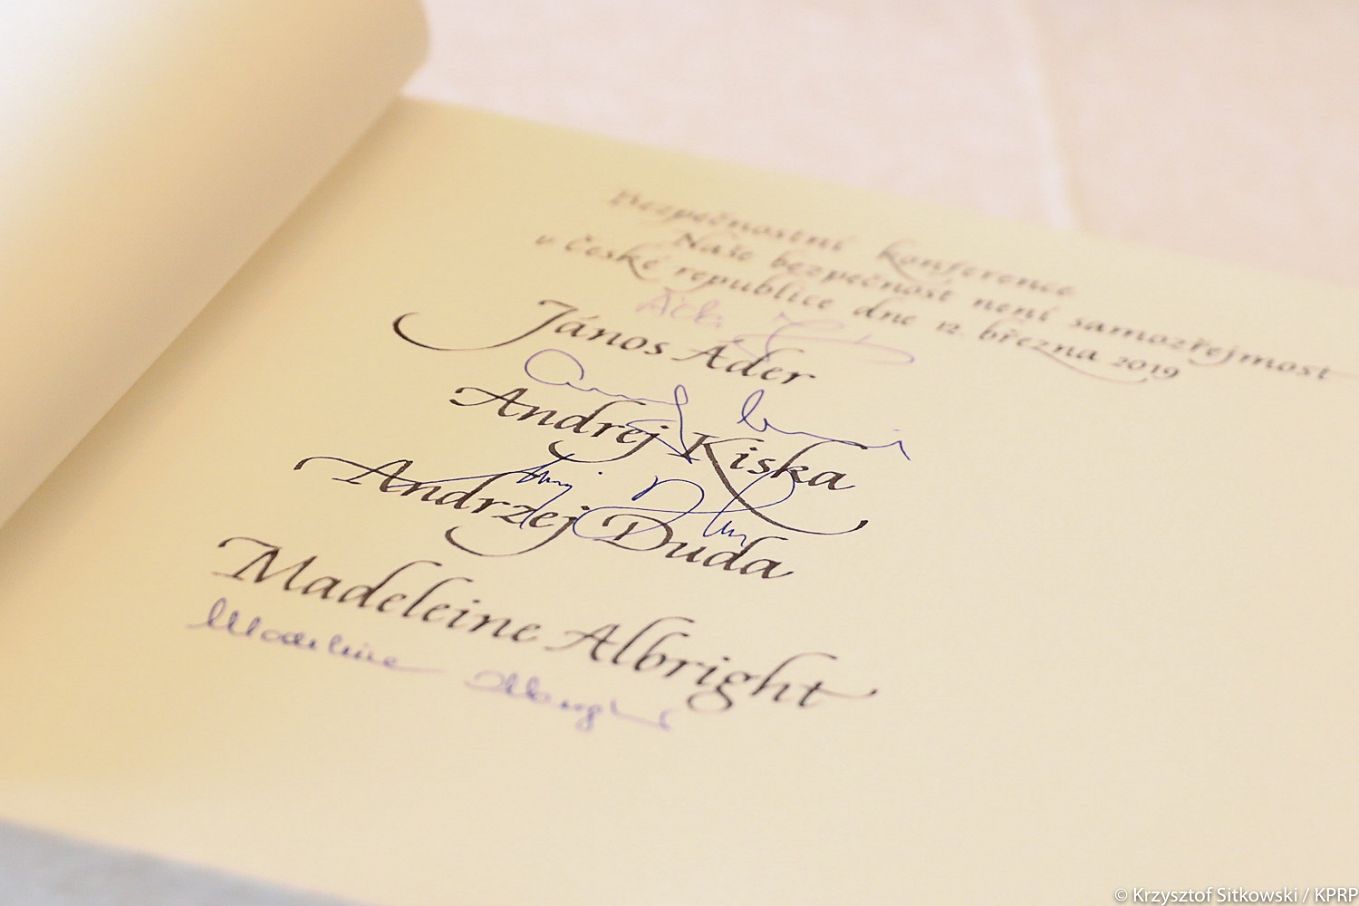 Bezpečnostní konference
Naše bezpečnost není samozřejmost
v České republice dne 12. března 2019
János Áder
Andrej Kiska
Andrzej Duda
Madeleine Albright
Madeleine Albright
© Krzysztof Sitkowski / KPRP